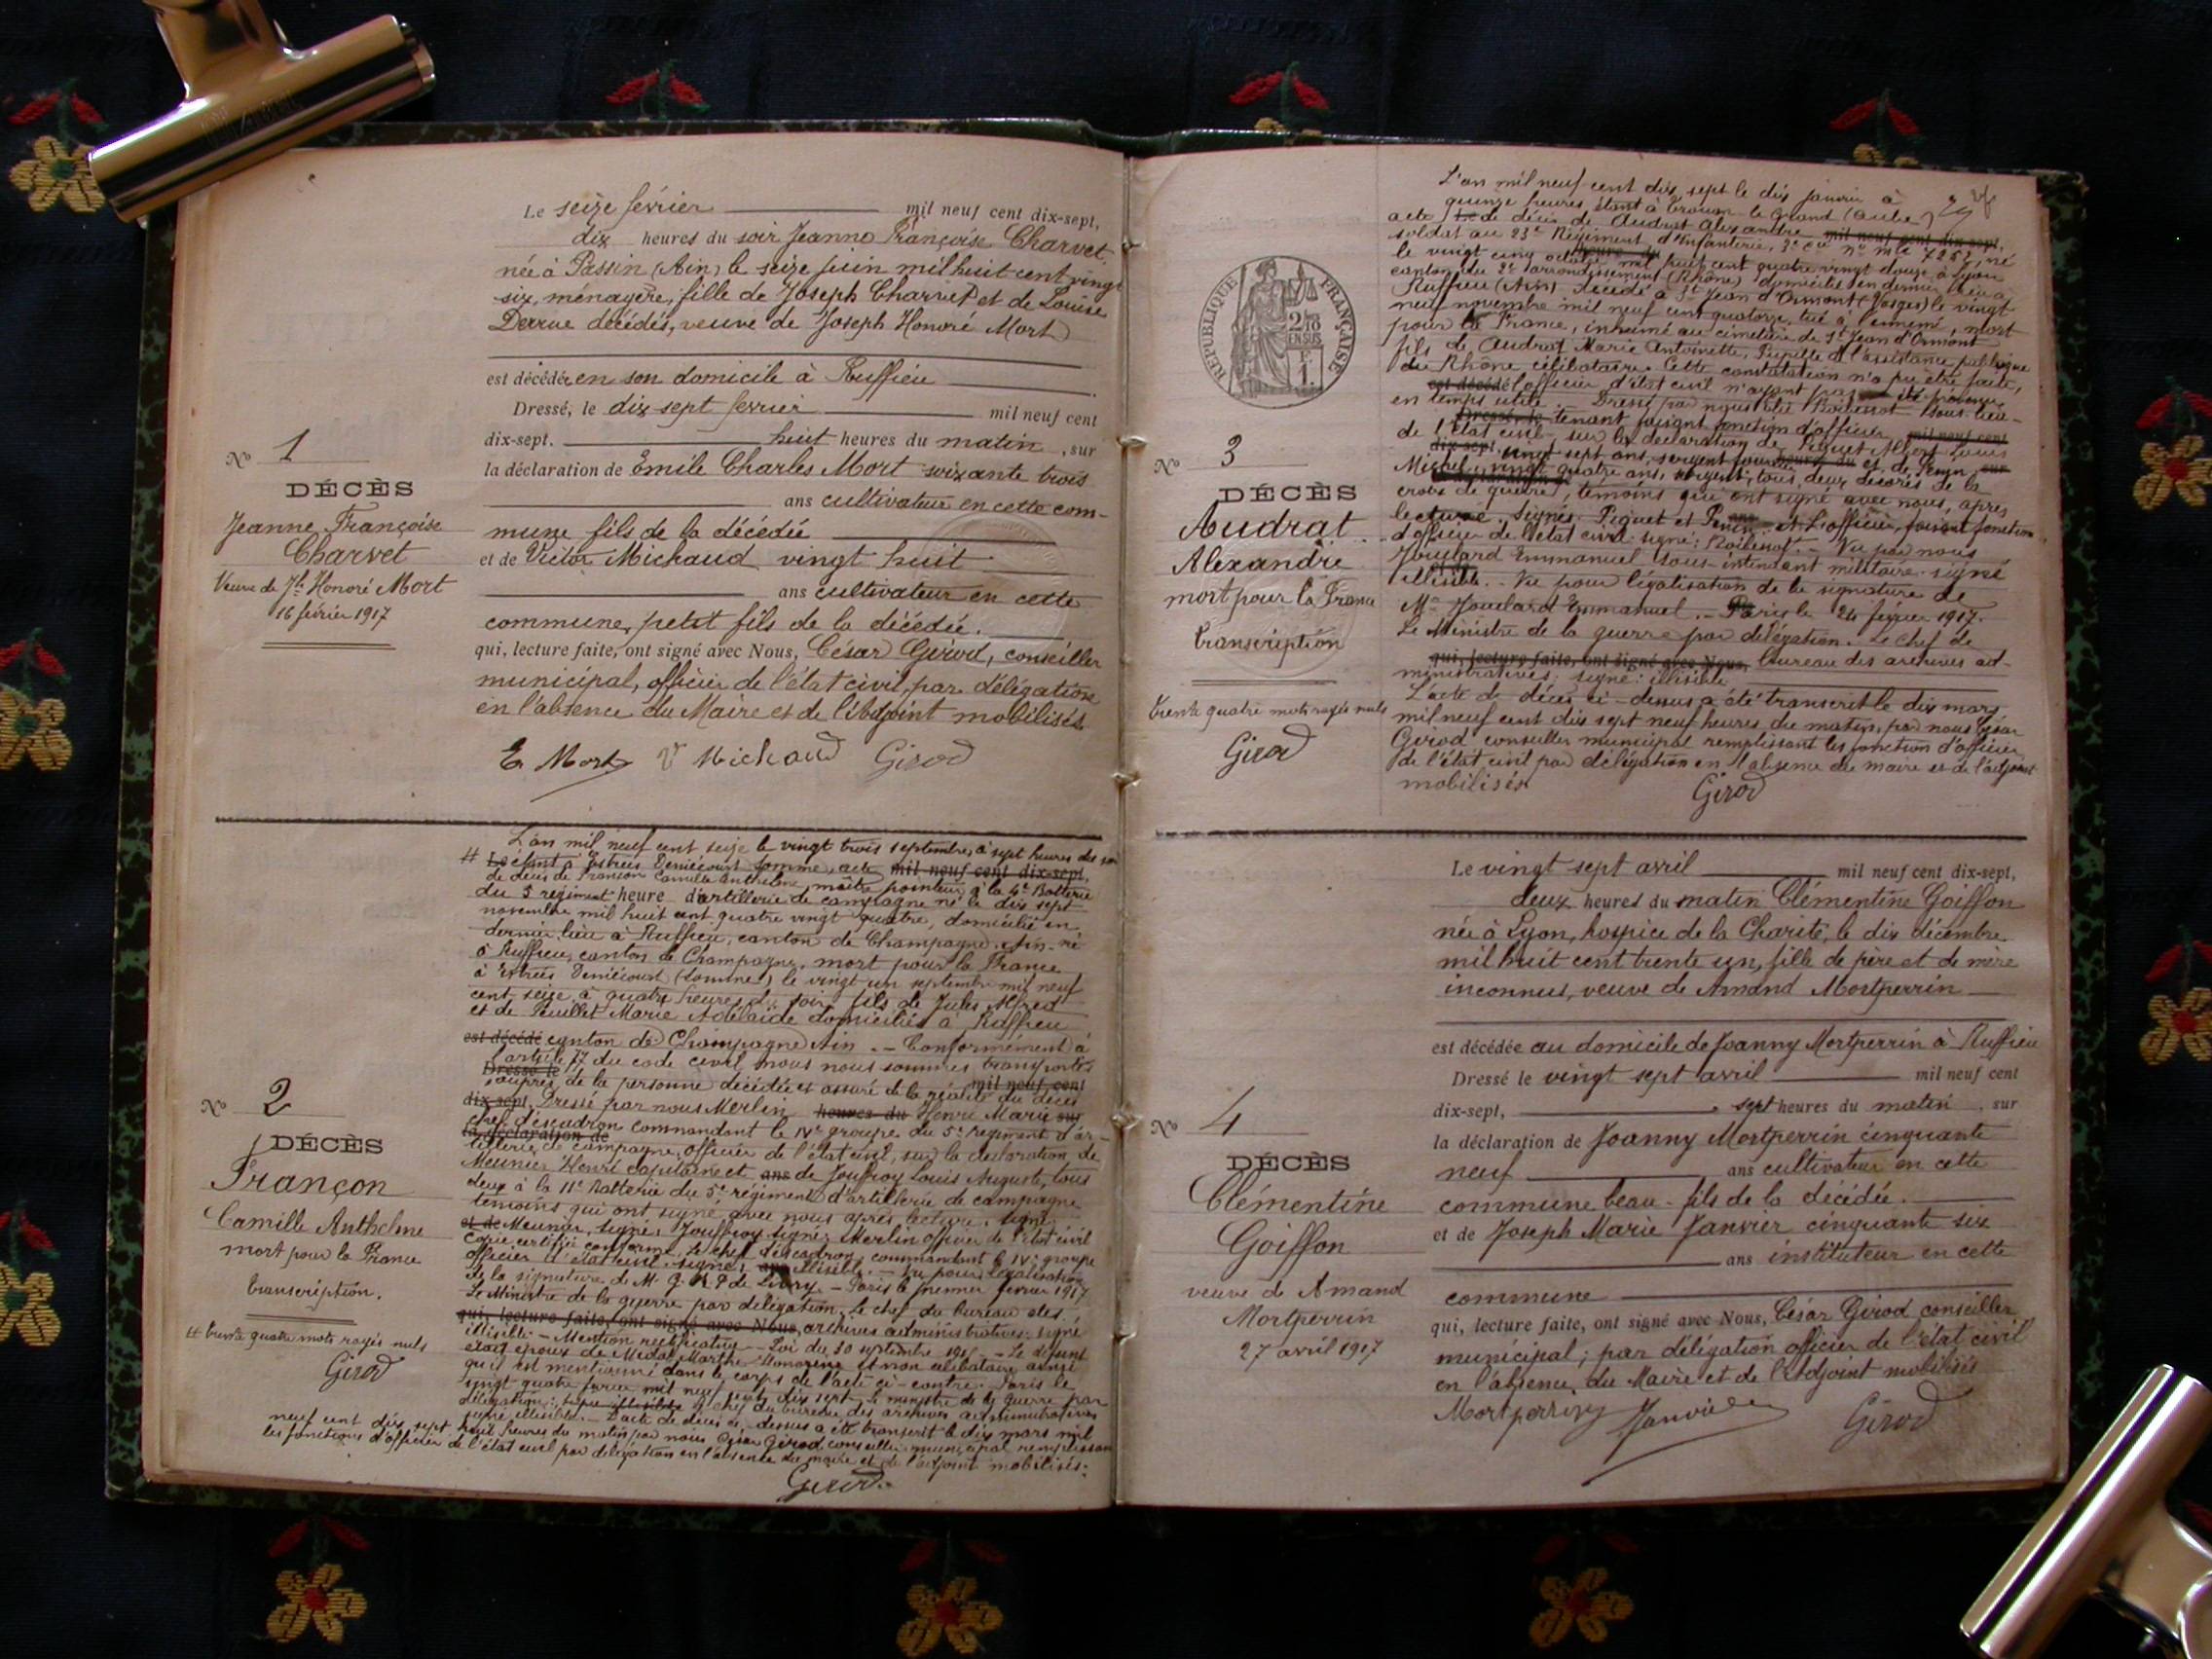 Le seize février mil neuf cent dix-sept,
dix heures du soir Jeanne Françoise Charvet
née à Passin (Ain) le seize juin mil huit cent vingt
six, ménagère, fille de Joseph Charvet et de Louise
Derrue décédés, veuve de Joseph Honoré Mort
est décédée en son domicile à Ruffieu
Dressé, le dix sept fevrier mil neuf cent
dix-sept. huit heures du matin, sur
la déclaration de Emile Charles Mort soixante trois
ans cultivateur en cette com-
mune fils de la décédée
et de Victor Michaud vingt huit
ans cultivateur en cette
commune, petit fils de la décédée.
qui, lecture faite, ont signé avec Nous, César Girod, conseiller
municipal, officier de l'état civil, par délégation
en l'absence du Maire et de l'Adjoint mobilisés
E. Mort V Michaud Girod
No 1
DÉCÈS
Jeanne Françoise
Charvet
Veuve de Jh Honoré Mort
16 février 1917
L'an mil neuf cent seize le vingt trois septembre, à sept heures du soir
# Le étant à Estrées Deniécourt Somme, acte mil neuf cent dix-sept,
de décès de Françon Camille Anthelme, maître pointeur à la 4e Batterie
du 5 regiment heure d'artillerie de campagne né le dix sept
novembre mil huit cent quatre vingt quatre, domicilié en
dernier lieu à Ruffieu, canton de Champagne. Ain- né
à Ruffieu, canton de Champagne, mort pour la France
à Estrées Deniécourt (Somme) le vingt un septembre mil neuf
cent seize à quatre heures du soir, fils de Jules Alfred
et de Peuillet Marie Adélaïde domiciliés à Ruffieu
est décédé canton de Champagne Ain. - Conformément à
l'article 77 du code civil nous nous sommes transportés
Dressé le auprès de la personne décédée et assuré de la réalité du décès mil neuf cent
dix-sept. Dressé par nous Merlin heures du Henri Marie sur
chef d'escadron commandant le IVe groupe du 5e regiment d'ar-
la déclaration de
tillerie de campagne, officier de l'état civil, sur la declaration de
Meunier Henri capitaine et ans de Jouffroy Louis Auguste, tous
deux à la 11e Batterie du 5e régiment d'artillerie de campagne
temoins qui ont signé avec nous après lecture. signé
et de Meunier, signé, Jouffroy signé; Merlin officier de l'état civil
Copie certifiée conforme, Le chef d'escadron, commandant le IVe groupe
officier d'état civil. signé: ans illisible. - Vu pour légalisation
de la signature de M. de - Paris le premier fevrier 1917
Le Ministre de la guerre par délégation. Le chef du bureau des
qui, lecture faite, ont signé avec Nous, archives administratives: signé
illisible - Mention rectificative - Loi du 30 septembre 1915 - Le défunt
était époux de Midol Marthe Honorine et non célibataire ainsi
qu'il est mentionné dans le corps de l'acte ci-contre. Paris le
vingt quatre fevrier mil neuf cent dix sept - Le ministre de la guerre par
délégation; le chef du bureau des archives administratives
signé illisible. - L'acte de décès ci-dessus a été transcrit le dix mars mil
neuf cent dix sept huit heures du matin par nous César Girod, conseiller municipal remplissant
les fonctions d'officier de l'état civil par délégation en l'absence du maire et de l'adjoint mobilisés.
Girod.
No 2
DÉCÈS
Françon
Camille Anthelme
mort pour la France
transcription.
# trente quatre mots rayés nuls
Girod
L'an mil neuf cent dix sept le dix janvier à
quinze heures étant à Trouan le Grand (Aube)
acte Le de décès de Audrat Alexandre mil neuf cent dix-sept,
soldat au 23e Régiment d'Infanterie, 3e cie no mle 7252, né
le vingt cinq octobre heures du mil huit cent quatre vingt douze à Lyon
canton du 2e arrondissement (Rhône) domicilié en dernier lieu à
Ruffieu (Ain) décédé à St Jean d'Ormont (Vosges) le vingt
neuf novembre mil neuf cent quatorze, tué à l'ennemi, mort
pour la France, inhumé au cimetière de St Jean d'Ormont
fils de Audrat Marie Antoinette, Pupille de l'assistance publique
du Rhône célibataire. Cette constatation n'a pu être faite,
est décédé l'officier d'état civil n'ayant pas été prévenu
en temps utile. Dressé par nous Boilessot sous lieu-
Dressé, le tenant faisant fonction d'officier mil neuf cent
de l'état civil sur la declaration de Piguet Albert Louis
dix-sept, vingt sept ans, sergent fourrier heures du et de Penin, sur
Michel, vingt quatre ans, sergent, tous deux décorés de la
la déclaration de
croix de guerre, témoins qui ont signé avec nous, après
lecture. Signés, Piguet et Penin ans et L'officier, faisant fonction
d'officier de l'état civil signé: Boilessot. - Vu par nous
Jouclard Emmanuel sous-intendant militaire. signé
et de illisible. - Vu pour légalisation de la signature de
Mr Jouclard Emmanuel. - Paris le 24 février 1917.
Le Ministre de la guerre par délégation. Le chef de
qui, lecture faite, ont signé avec Nous, bureau des archives ad-
ministratives; signé: illisible
L'acte de décès ci-dessus a été transcrit le dix mars
mil neuf cent dix sept neuf heures du matin, par nous César
Girod conseiller municipal remplissant les fonction d'officier
de l'état civil par délégation en l'absence du maire et de l'adjoint
mobilisés Girod
RÉPUBLIQUE FRANÇAISE
2/10
EN SUS
1 F.
No 3
DÉCÈS
Audrat
Alexandre
mort pour la France
transcription
trente quatre mots rayés nuls
Girod
Le vingt sept avril mil neuf cent dix-sept,
deux heures du matin Clémentine Goiffon
née à Lyon, hospice de la Charité, le dix décembre
mil huit cent trente un, fille de père et de mère
inconnus, veuve de Amand Mortperrin
est décédée au domicile de Joanny Mortperrin à Ruffieu
Dressé le vingt sept avril mil neuf cent
dix-sept, sept heures du matin, sur
la déclaration de Joanny Mortperrin cinquante
neuf ans cultivateur en cette
commune beau-fils de la décédée.
et de Joseph Marie Janvier cinquante six
ans instituteur en cette
commune
qui, lecture faite, ont signé avec Nous, César Girod conseiller
municipal; par délégation officier de l'état civil
en l'absence du Maire et de l'Adjoint mobilisés
Mortperrin Janvier Girod
No 4
DÉCÈS
Clémentine
Goiffon
veuve de Amand
Mortperrin
27 avril 1917